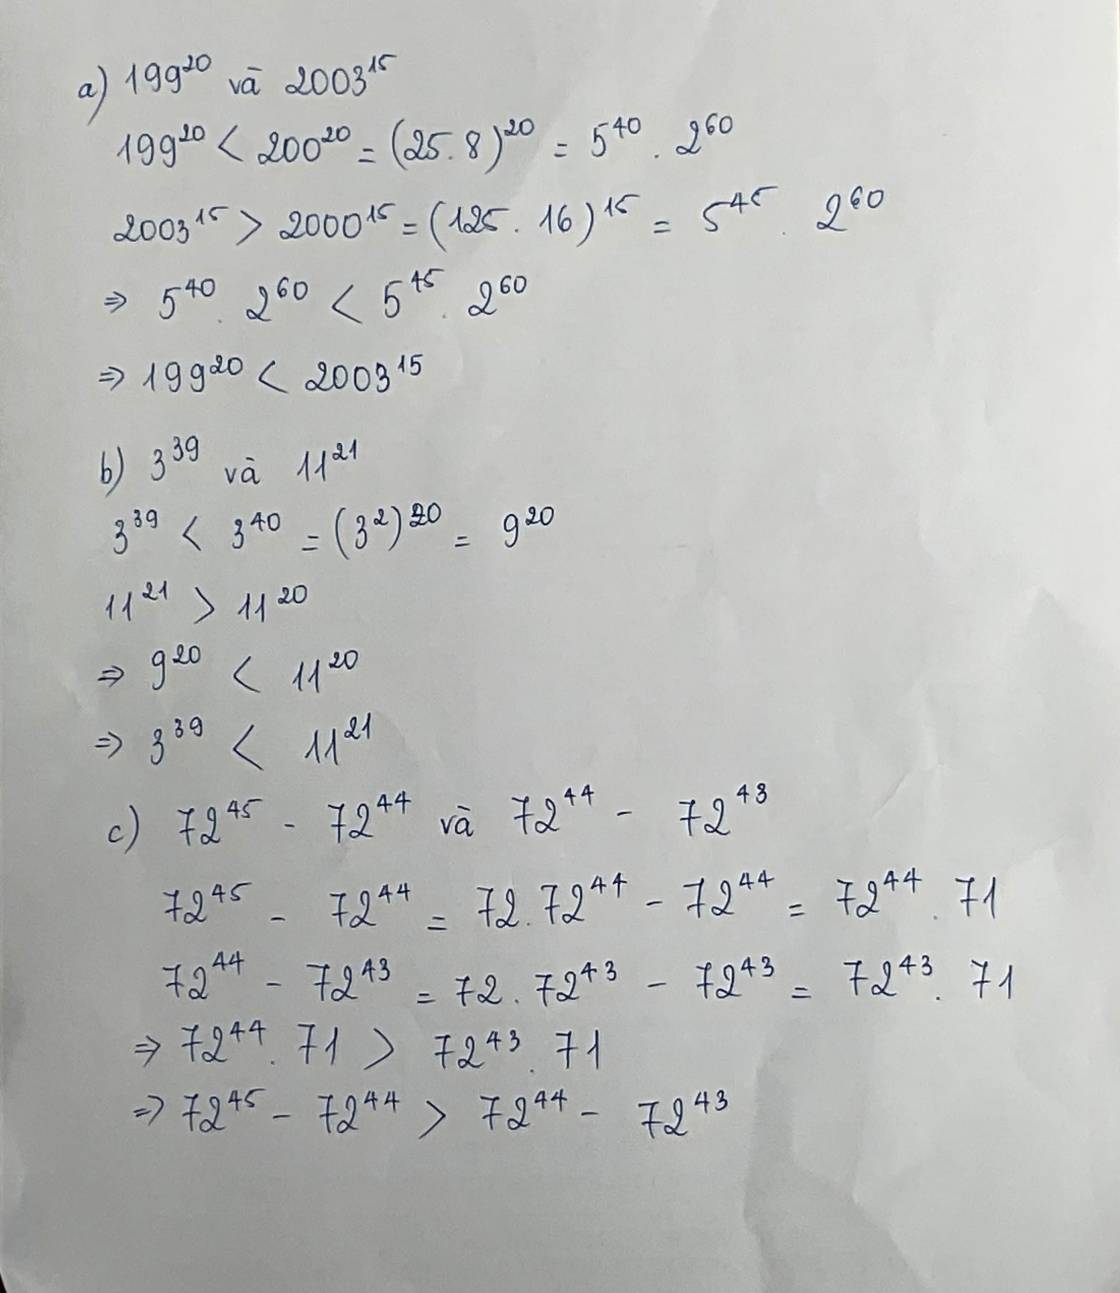 a) 199²⁰ và 2003¹⁵
199²⁰ < 200²⁰ = (25.8)²⁰ = 5⁴⁰ . 2⁶⁰
2003¹⁵ > 2000¹⁵ = (125.16)¹⁵ = 5⁴⁵ . 2⁶⁰
⇒ 5⁴⁰ . 2⁶⁰ < 5⁴⁵ . 2⁶⁰
⇒ 199²⁰ < 2003¹⁵
b) 3³⁹ và 11²¹
3³⁹ < 3⁴⁰ = (3²)²⁰ = 9²⁰
11²¹ > 11²⁰
⇒ 9²⁰ < 11²⁰
⇒ 3³⁹ < 11²¹
c) 72⁴⁵ - 72⁴⁴ và 72⁴⁴ - 72⁴³
72⁴⁵ - 72⁴⁴ = 72.72⁴⁴ - 72⁴⁴ = 72⁴⁴ . 71
72⁴⁴ - 72⁴³ = 72.72⁴³ - 72⁴³ = 72⁴³ . 71
⇒ 72⁴⁴ . 71 > 72⁴³ . 71
⇒ 72⁴⁵ - 72⁴⁴ > 72⁴⁴ - 72⁴³